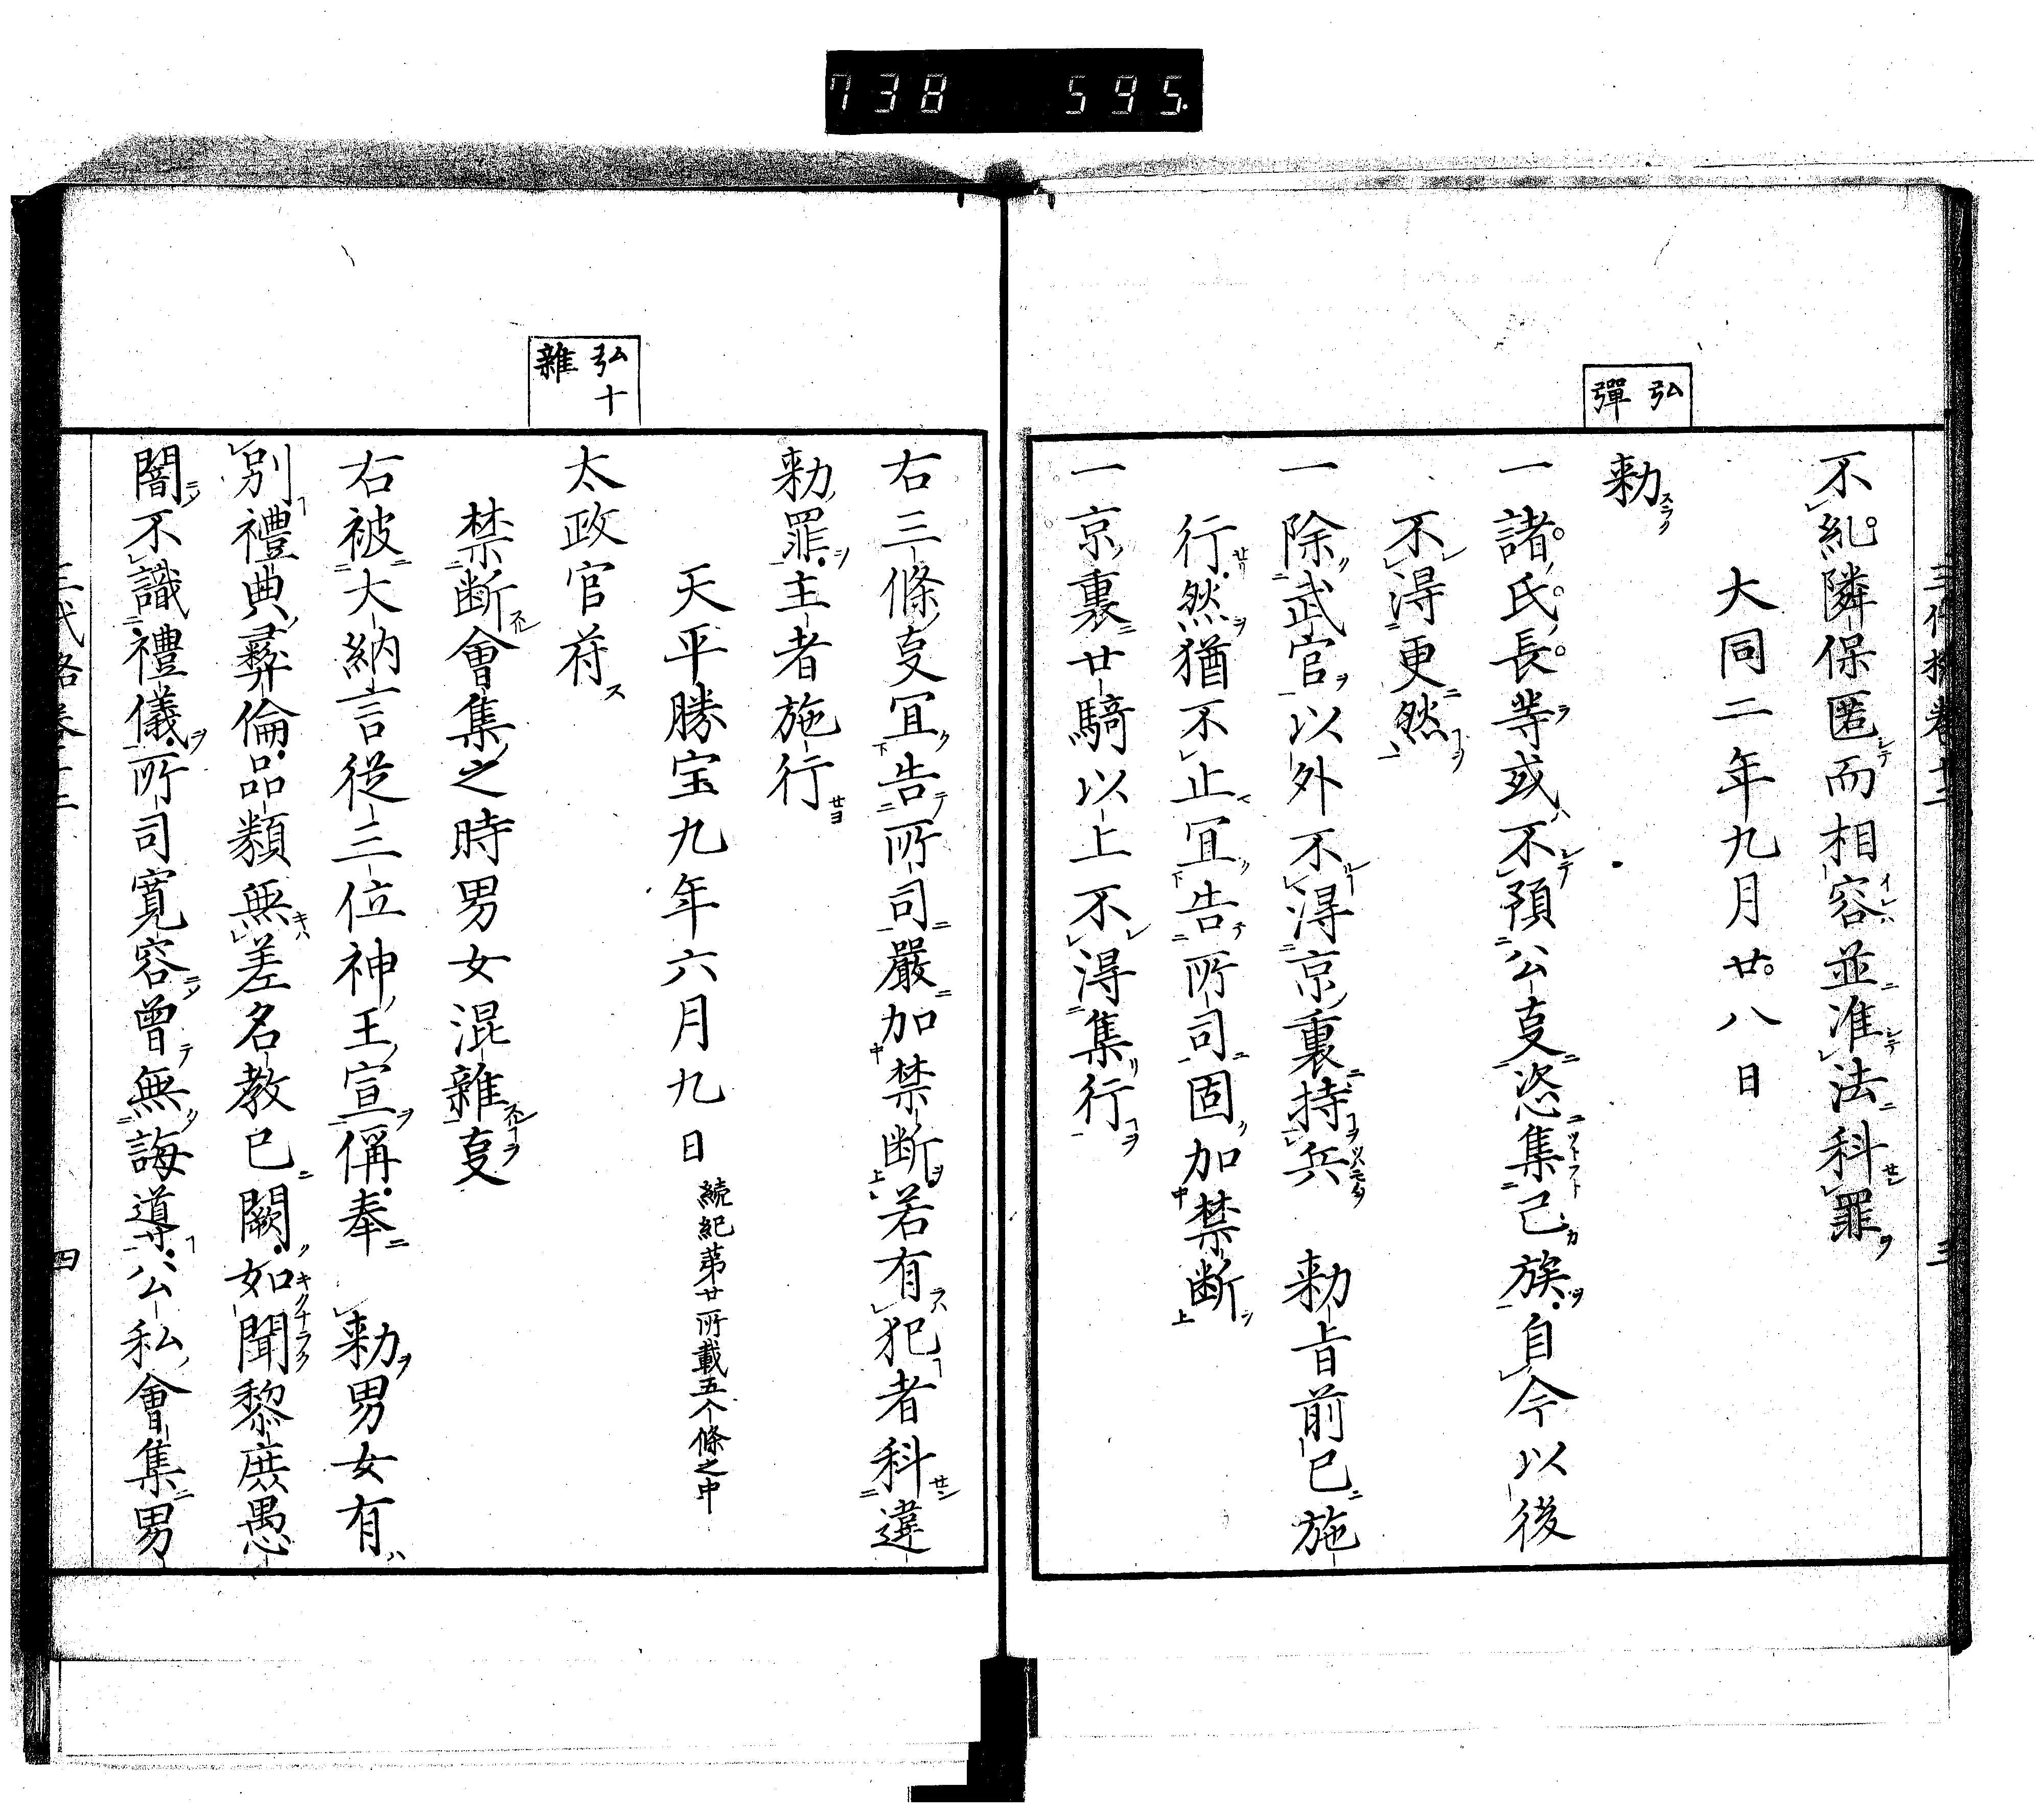 738 595
不糺隣保匿而相容並准法科罪
大同二年九月廿八日
弘
彈
勅
一諸氏長等或不預公叓恣集己族自今以後
不得更然
一除武官以外不得京裏持兵 勅旨前已施
行然猶不止冝告所司固加禁断
一京裏廿騎以上不得集行
右三條叓冝告所司嚴加禁断若有犯者科違
勅罪主者施行
天平勝宝九年六月九日 続紀第廿所載五个條之中
弘十
雜
太政官苻
禁断會集之時男女混雜叓
右被大納言従三位神王宣偁奉 勅男女有
別禮典彝倫品類無差名教已闕如聞黎庶愚
闇不識禮儀所司寛容曾無誨導公私會集男
四